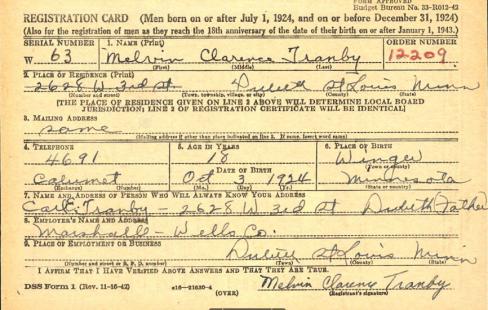 FORM APPROVED
Budget Bureau No. 33-R012-42
REGISTRATION CARD (Men born on or after July 1, 1924, and on or before December 31, 1924)
(Also for the registration of men as they reach the 18th anniversary of the date of their birth on or after January 1, 1943.)
SERIAL NUMBER 1. NAME (Print) ORDER NUMBER
W 63 Melvin Clarence Tranby 12209
(First) (Middle) (Last)
2. PLACE OF RESIDENCE (Print)
2628 W 3rd St Duluth St Louis Minn
(Number and street) (Town, township, village, or city) (County) (State)
[THE PLACE OF RESIDENCE GIVEN ON LINE 2 ABOVE WILL DETERMINE LOCAL BOARD
JURISDICTION; LINE 2 OF REGISTRATION CERTIFICATE WILL BE IDENTICAL]
3. MAILING ADDRESS
same
(Mailing address if other than place indicated on line 2. If same, insert word same)
4. TELEPHONE 5. AGE IN YEARS 6. PLACE OF BIRTH
4691 18 Winger
DATE OF BIRTH (Town or county)
Calumet Oct 3 1924 Minnesota
(Exchange) (Number) (Mo.) (Day) (Yr.) (State or country)
7. NAME AND ADDRESS OF PERSON WHO WILL ALWAYS KNOW YOUR ADDRESS
Carl Tranby - 2628 W 3rd St Duluth (Father)
8. EMPLOYER'S NAME AND ADDRESS
Marshall - Wells Co.
9. PLACE OF EMPLOYMENT OR BUSINESS
Duluth St Louis Minn
(Number and street or R. F. D. number) (Town) (County) (State)
I AFFIRM THAT I HAVE VERIFIED ABOVE ANSWERS AND THAT THEY ARE TRUE.
DSS Form 1 (Rev. 11-16-42) e16-21630-4 Melvin Clarence Tranby
(OVER) (Registrant's signature)